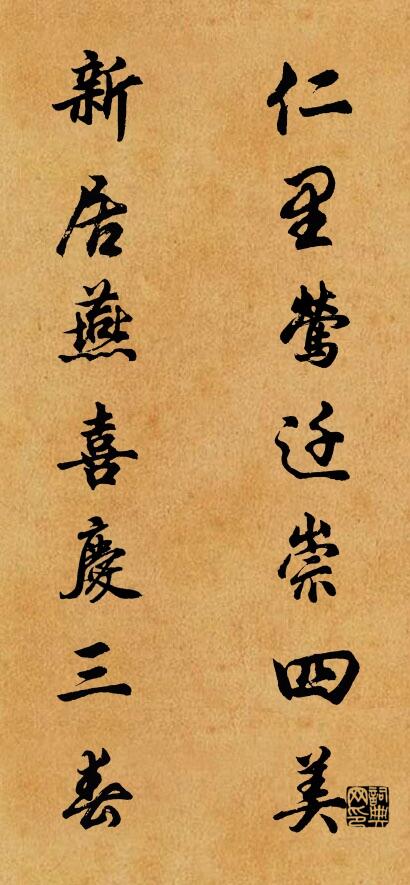 仁里莺迁崇四美
新居燕喜慶三春
詞典网印